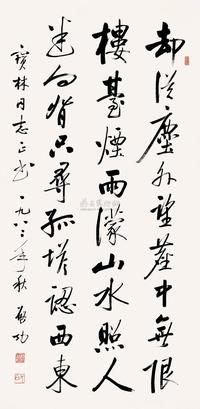 却從塵外望塵中無限
樓臺煙雨濛山水照人
迷向背只尋孤塔認西東
寶林同志正書一九八三年秋啟功